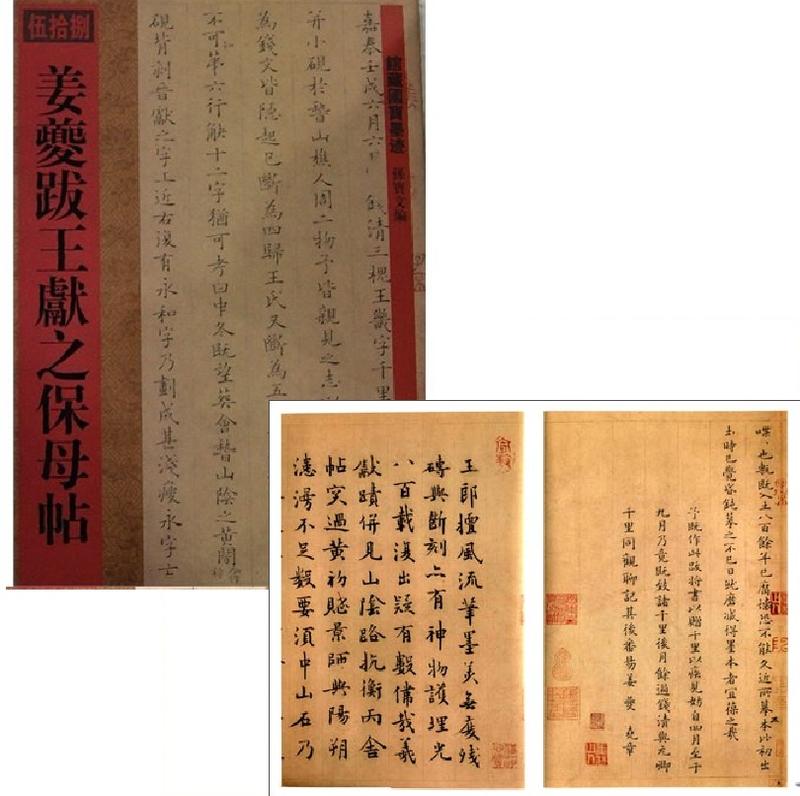 伍拾捌
姜夔跋王獻之保母帖
館藏國寶墨迹 孫寶文編
嘉泰壬戌六月六日 錢清三槐王畿字千里
并小硯於嵇山樵人周二物予皆親見之志
為錢文皆隱起已斷為四歸王氏又斷為五
不可 第六行缺十二字猶可考曰中冬既望葬會嵇山陰之黃閍
硯背刻晉獻之字上近右復有永和字乃劃成甚淺瘦永字亡
喋〻也甎既入土八百餘年已腐壞恐不能久近所摹本比初出
土時已覺昏鈍摹之不已日就磨滅得墨本者宜葆之哉
予既作此跋將書以贈千里以病見妨自四月至于
九月乃竟既致諸千里後月餘過錢清與元卿
千里同觀聊記其後番易姜夔 堯章
王郎擅風流筆墨美無度殘
磚與斷刻亦有神物護埋光
八百載復出疑有數儒哉羲
獻蹟併見山陰路抗衡丙舍
帖突過黃初賦景師與陽朔
漶漫不足數要須中山石乃